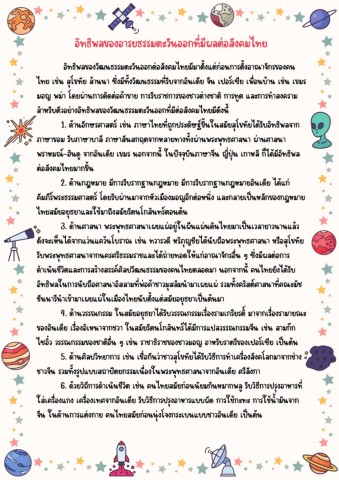 อิทธิพลของอารยธรรมตะวันออกที่มีผลต่อสังคมไทย
อิทธิพลของวัฒนธรรมตะวันออกต่อสังคมไทยมีมาตั้งแต่ก่อนการตั้งอาณาจักรของคน
ไทย เช่น สุโขทัย ล้านนา ซึ่งมีทั้งวัฒนธรรมที่รับจากอินเดีย จีน เปอร์เซีย เพื่อนบ้าน เช่น เขมร
มอญ พม่า โดยผ่านการติดต่อค้าขาย การรับราชการของชาวต่างชาติ การทูต และการทำสงคราม
สำหรับตัวอย่างอิทธิพลของวัฒนธรรมตะวันออกที่มีต่อสังคมไทยมีดังนี้
1. ด้านอักษรศาสตร์ เช่น ภาษาไทยที่ถูกประดิษฐ์ขึ้นในสมัยสุโขทัยได้รับอิทธิพลจาก
ภาษาขอม รับภาษาบาลี ภาษาสันสกฤตจากหลายทางทั้งผ่านพระพุทธศาสนา ผ่านศาสนา
พราหมณ์-ฮินดู จากอินเดีย เขมร นอกจากนี้ ในปัจจุบันภาษาจีน ญี่ปุ่น เกาหลี ก็ได้มีอิทธิพล
ต่อสังคมไทยมากขึ้น
2. ด้านกฎหมาย มีการรับรากฐานกฎหมาย มีการรับรากฐานกฎหมายอินเดีย ได้แก่
คัมภีร์พระธรรมศาสตร์ โดยรับผ่านมาจากหัวเมืองมอญอีกต่อหนึ่ง และกลายเป็นหลักของกฎหมาย
ไทยสมัยอยุธยาและใช้มาถึงสมัยรัตนโกสินทร์ตอนต้น
3. ด้านศาสนา พระพุทธศาสนาเผยแผ่อยู่ในผืนแผ่นดินไทยมาเป็นเวลายาวนานแล้ว
ดังจะเห็นได้จากแว่นแคว้นโบราณ เช่น ทวารวดี หริภุญชัยได้นับถือพระพุทธศาสนา หรือสุโขทัย
รับพระพุทธศาสนาจากนครศรีธรรมราชและได้ถ่ายทอดให้แก่อาณาจักรอื่น ๆ ซึ่งมีผลต่อการ
ดำเนินชีวิตและการสร้างสรรค์ศิลปวัฒนธรรมของคนไทยตลอดมา นอกจากนี้ คนไทยยังได้รับ
อิทธิพลในการนับถือศาสนาอิสลามที่พ่อค้าชาวมุสลิมนำมาเผยแผ่ รวมทั้งคริสต์ศาสนาที่คณะมิช
ชันนารีนำเข้ามาเผยแผ่ในเมืองไทยนับตั้งแต่สมัยอยุธยาเป็นต้นมา
4. ด้านวรรณกรรม ในสมัยอยุธยาได้รับวรรณกรรมเรื่องรามเกียรติ์ มาจากเรื่องรามายณะ
ของอินเดีย เรื่องอิเหนาจากชวา ในสมัยรัตนโกสินทร์ได้มีการแปลวรรณกรรมจีน เช่น สามก๊ก
ไซอิ๋ว วรรณกรรมของชาติอื่น ๆ เช่น ราชาธิราชของชาวมอญ อาหรับราตรีของเปอร์เซีย เป็นต้น
5. ด้านศิลปวิทยาการ เช่น เชื่อกันว่าชาวสุโขทัยได้รับวิธีการทำเครื่องสังคโลกมาจากช่าง
ชาวจีน รวมทั้งรูปแบบสถาปัตยกรรมเนื่องในพระพุทธศาสนาจากอินเดีย ศรีลังกา
6. ด้วยวิถีการดำเนินชีวิต เช่น คนไทยสมัยก่อนนิยมกินหมากพลู รับวิธีการปรุงอาหารที่
ใส่เครื่องแกง เครื่องเทศจากอินเดีย รับวิธีการปรุงอาหารแบบผัด การใช้กะทะ การใช้น้ำมันจาก
จีน ในด้านการแต่งกาย คนไทยสมัยก่อนนุ่งโจงกระเบนแบบชาวอินเดีย เป็นต้น